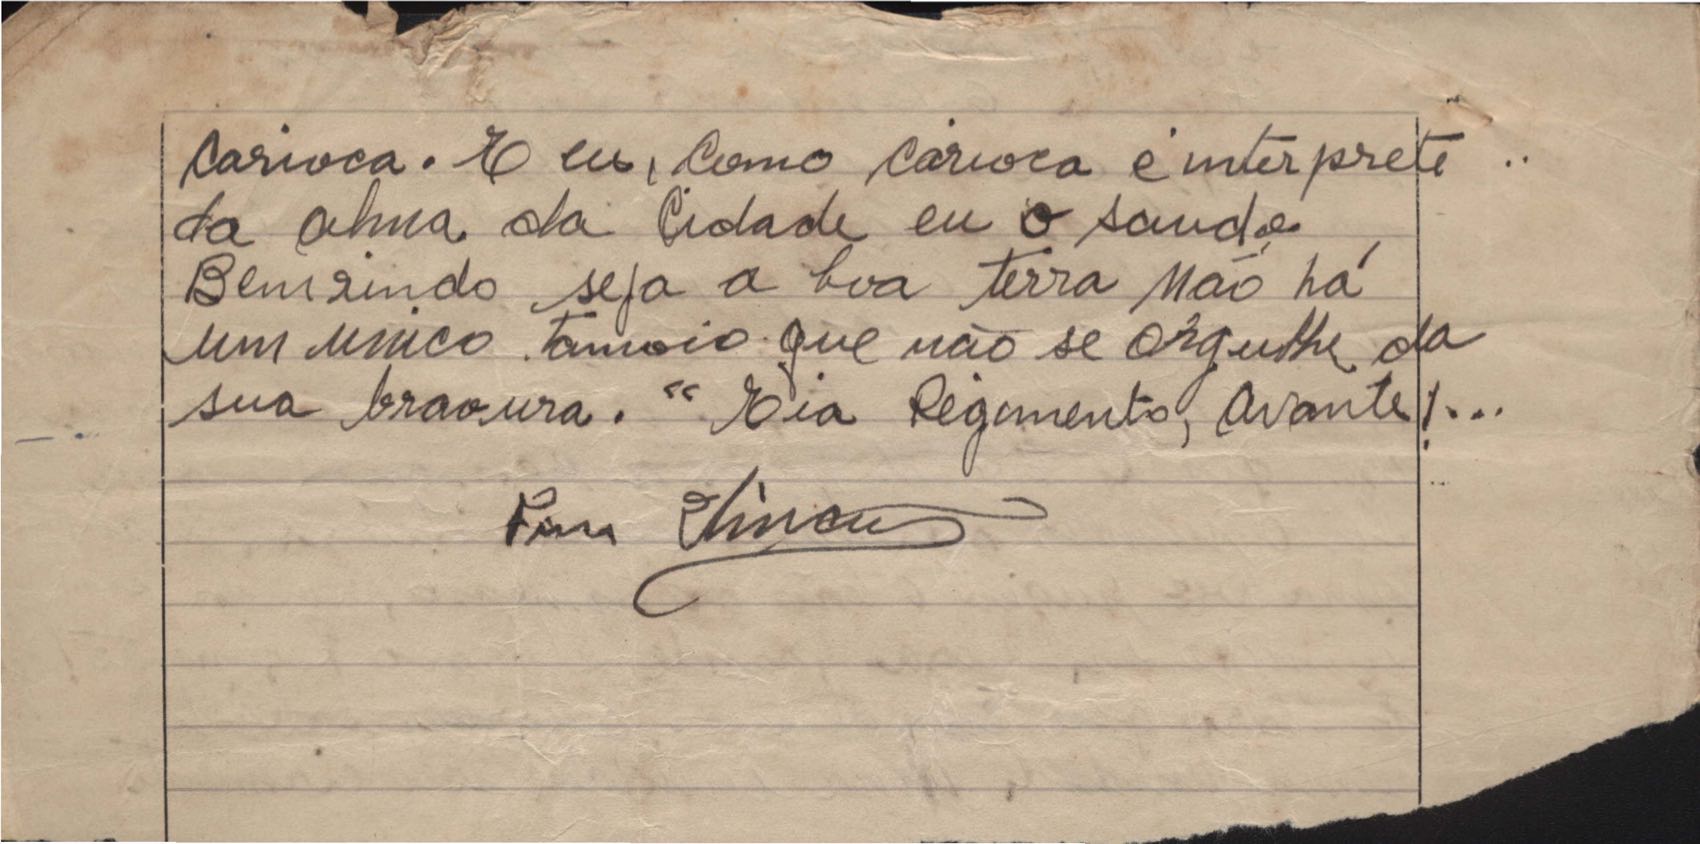 Carioca. E eu, Como Carioca e interprete
da alma da Cidade eu o saudo
Bemvindo seja a boa terra Não há
um unico tamoio que não se orgulhe da
sua bravura. " Eia Regimento, Avante!...